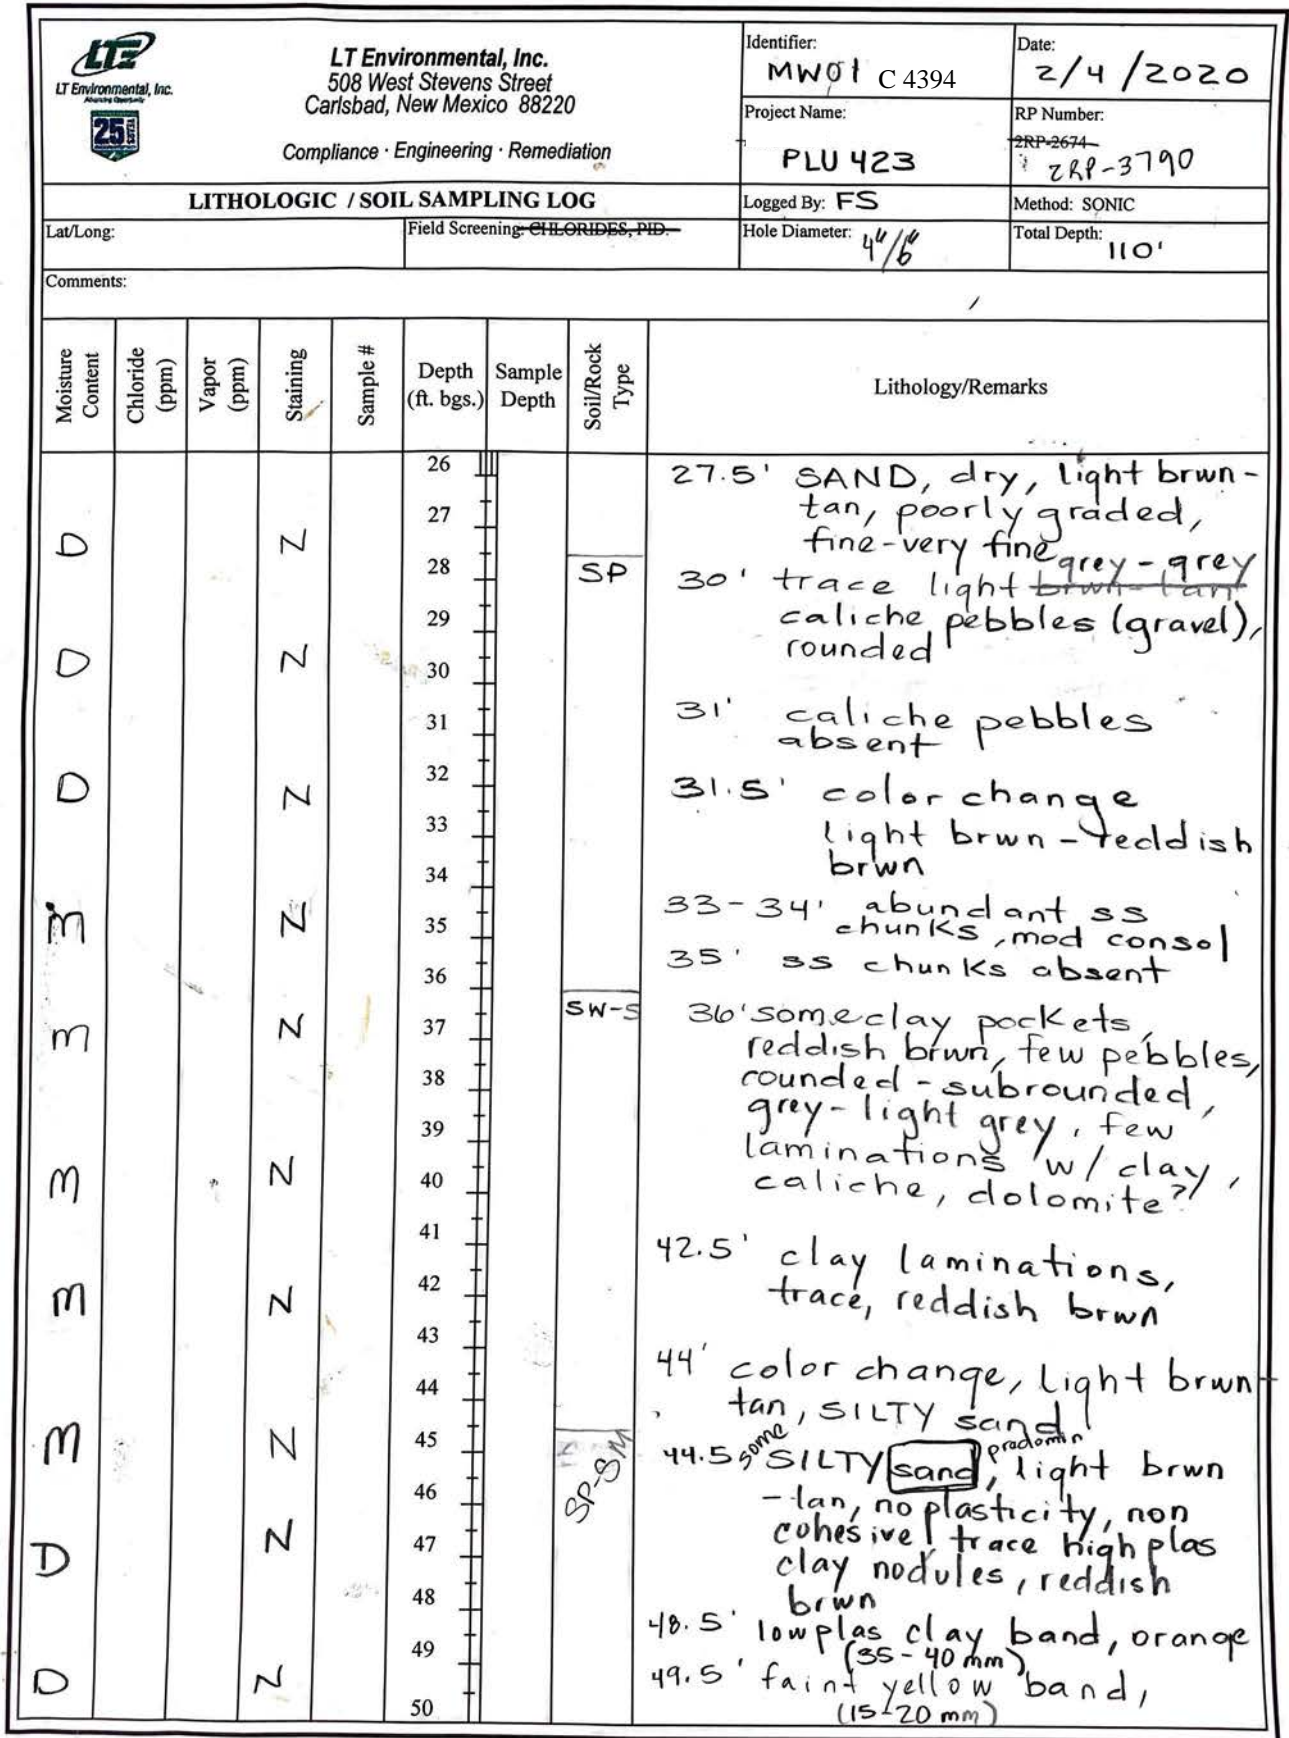 LTE
LT Environmental, Inc.
Advancing Opportunity
25 YEARS
LT Environmental, Inc.
508 West Stevens Street
Carlsbad, New Mexico 88220
Compliance · Engineering · Remediation
Identifier:
MW01 C 4394
Date:
2/4/2020
Project Name:
PLU 423
RP Number:
2RP-2674
2RP-3790
LITHOLOGIC / SOIL SAMPLING LOG
Logged By: FS
Method: SONIC
Lat/Long:
Field Screening: CHLORIDES, PID.
Hole Diameter: 4"/6"
Total Depth: 110'
Comments:
Moisture Content
Chloride (ppm)
Vapor (ppm)
Staining
Sample #
Depth (ft. bgs.)
Sample Depth
Soil/Rock Type
Lithology/Remarks
26
27
D N
28 SP
29
D N
30
31
32
D N
33
34
M N
35
36
M N
37 SW-S
38
39
M N
40
41
42
M N
43
44
M N
45
46 SP-SM
D N
47
48
49
D N
50
27.5' SAND, dry, light brwn-
tan, poorly graded,
fine-very fine
grey-grey
30' trace light brwn-tan
caliche pebbles (gravel),
rounded
31' caliche pebbles
absent
31.5' color change
light brwn - reddish
brwn
33-34' abundant ss
chunks, mod consol
35' ss chunks absent
36' some clay pockets,
reddish brwn, few pebbles,
rounded - subrounded,
grey-light grey, few
laminations w/ clay,
caliche, dolomite?
42.5' clay laminations,
trace, reddish brwn
44' color change, light brwn
tan, SILTY sand
44.5' some SILTY sand, predomin light brwn
-tan, no plasticity, non
cohesive, trace high plas
clay nodules, reddish
brwn
48.5' low plas clay band, orange
(35-40 mm)
49.5' faint yellow band,
(15-20 mm)